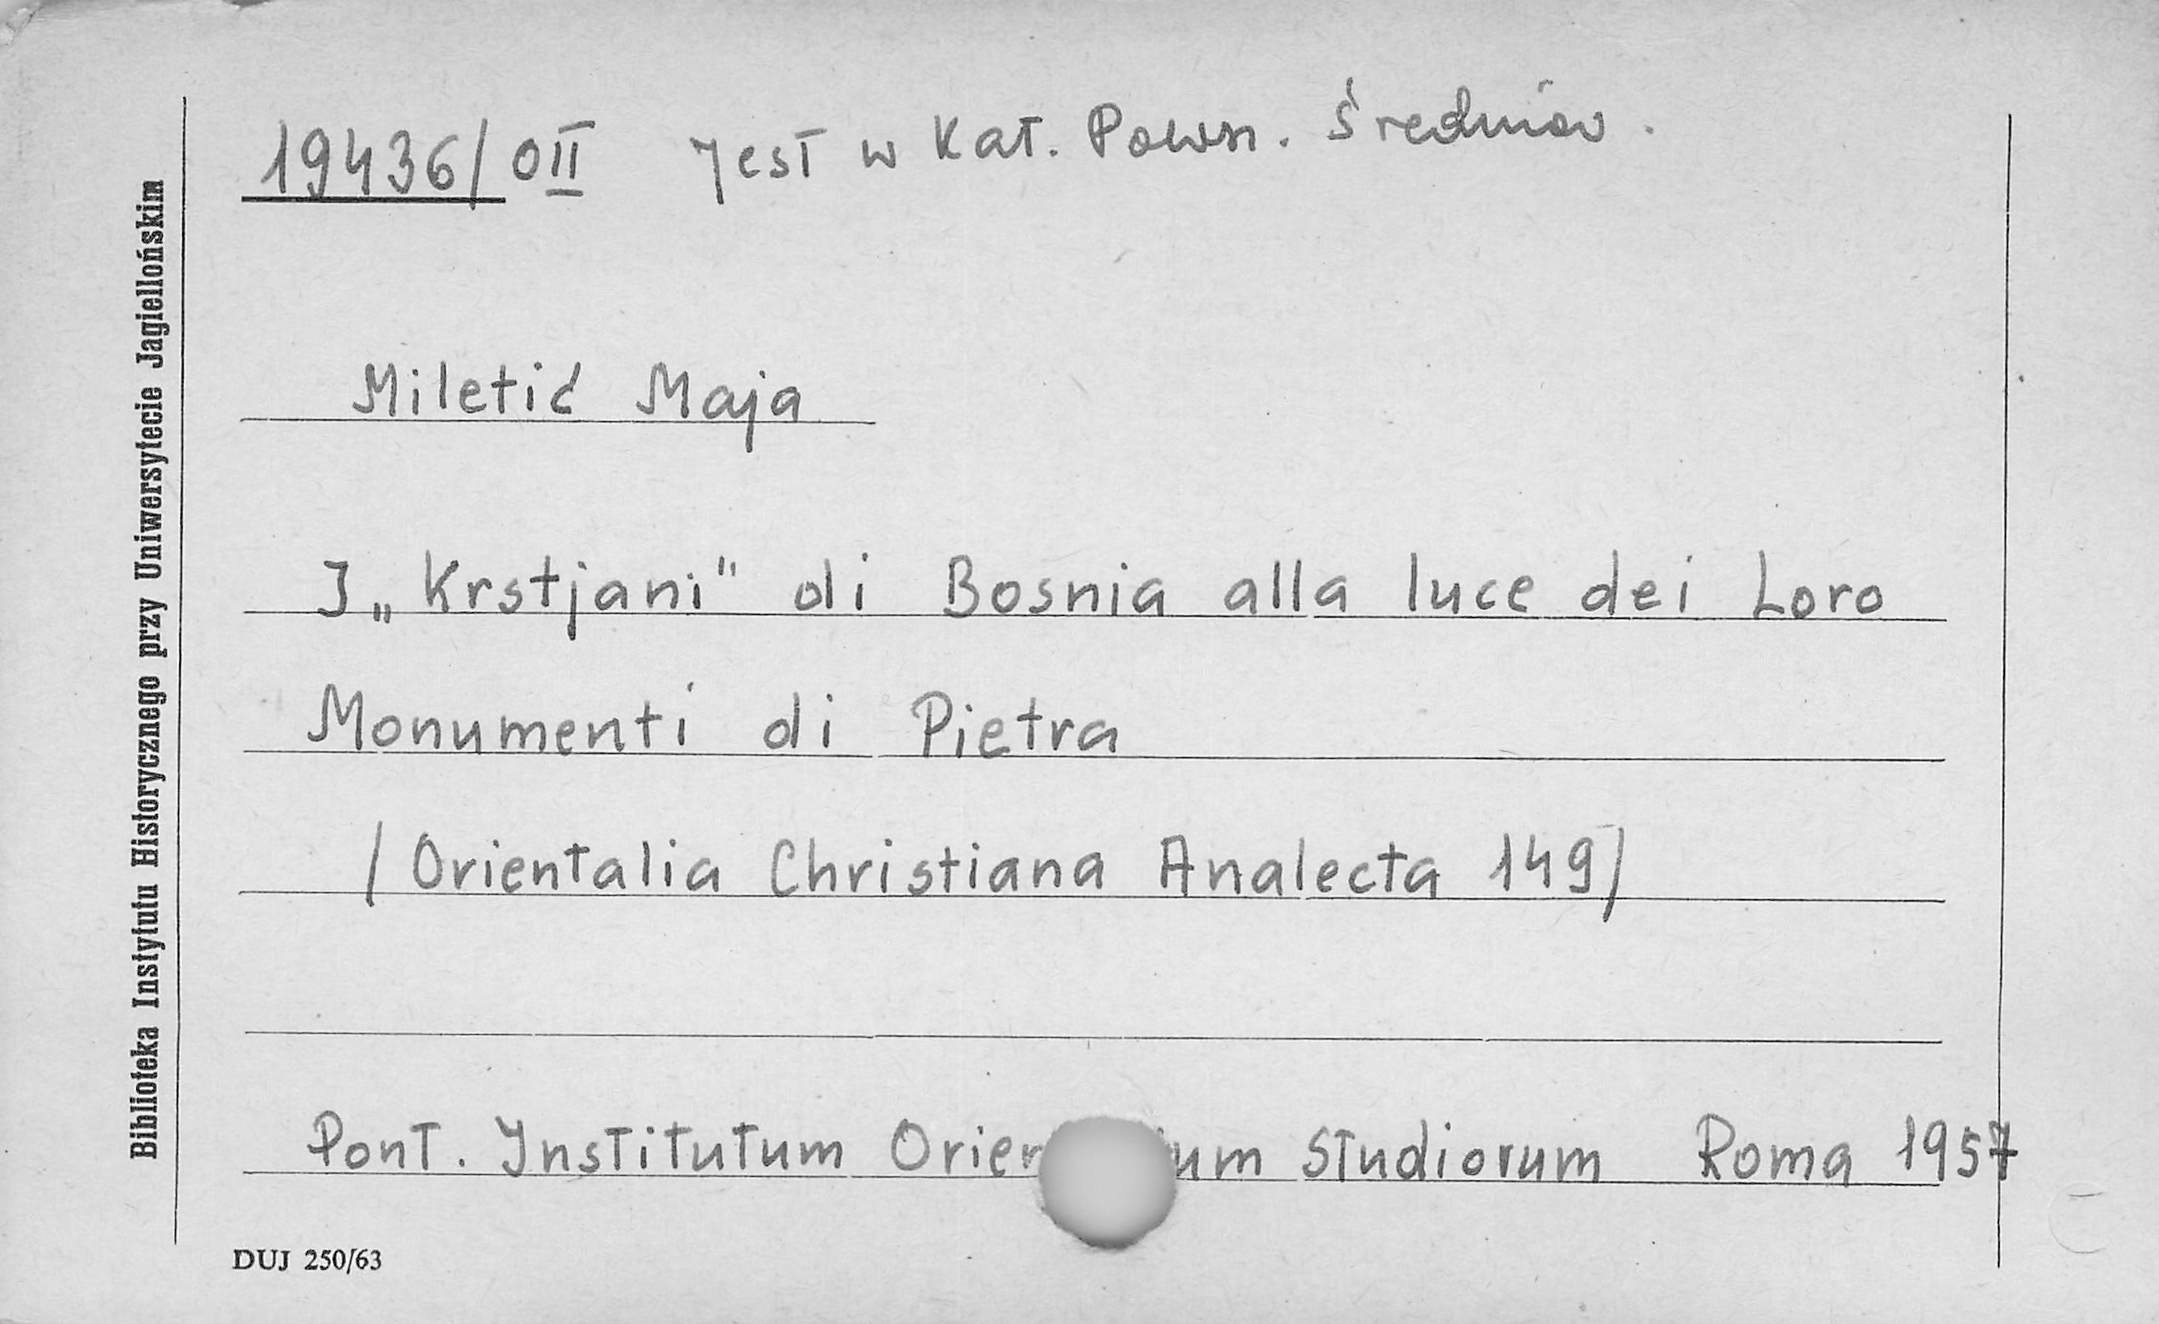 19436/OII Jest w Kat. Powsz. Średniow.
Biblioteka Instytutu Historycznego przy Uniwersytecie Jagiellońskim
Miletić Maja
I „Krstjani" di Bosnia alla luce dei Loro
Monumenti di Pietra
/Orientalia Christiana Analecta 149/
Pont. Institutum Studiorum Roma 1957
DUJ 250/63